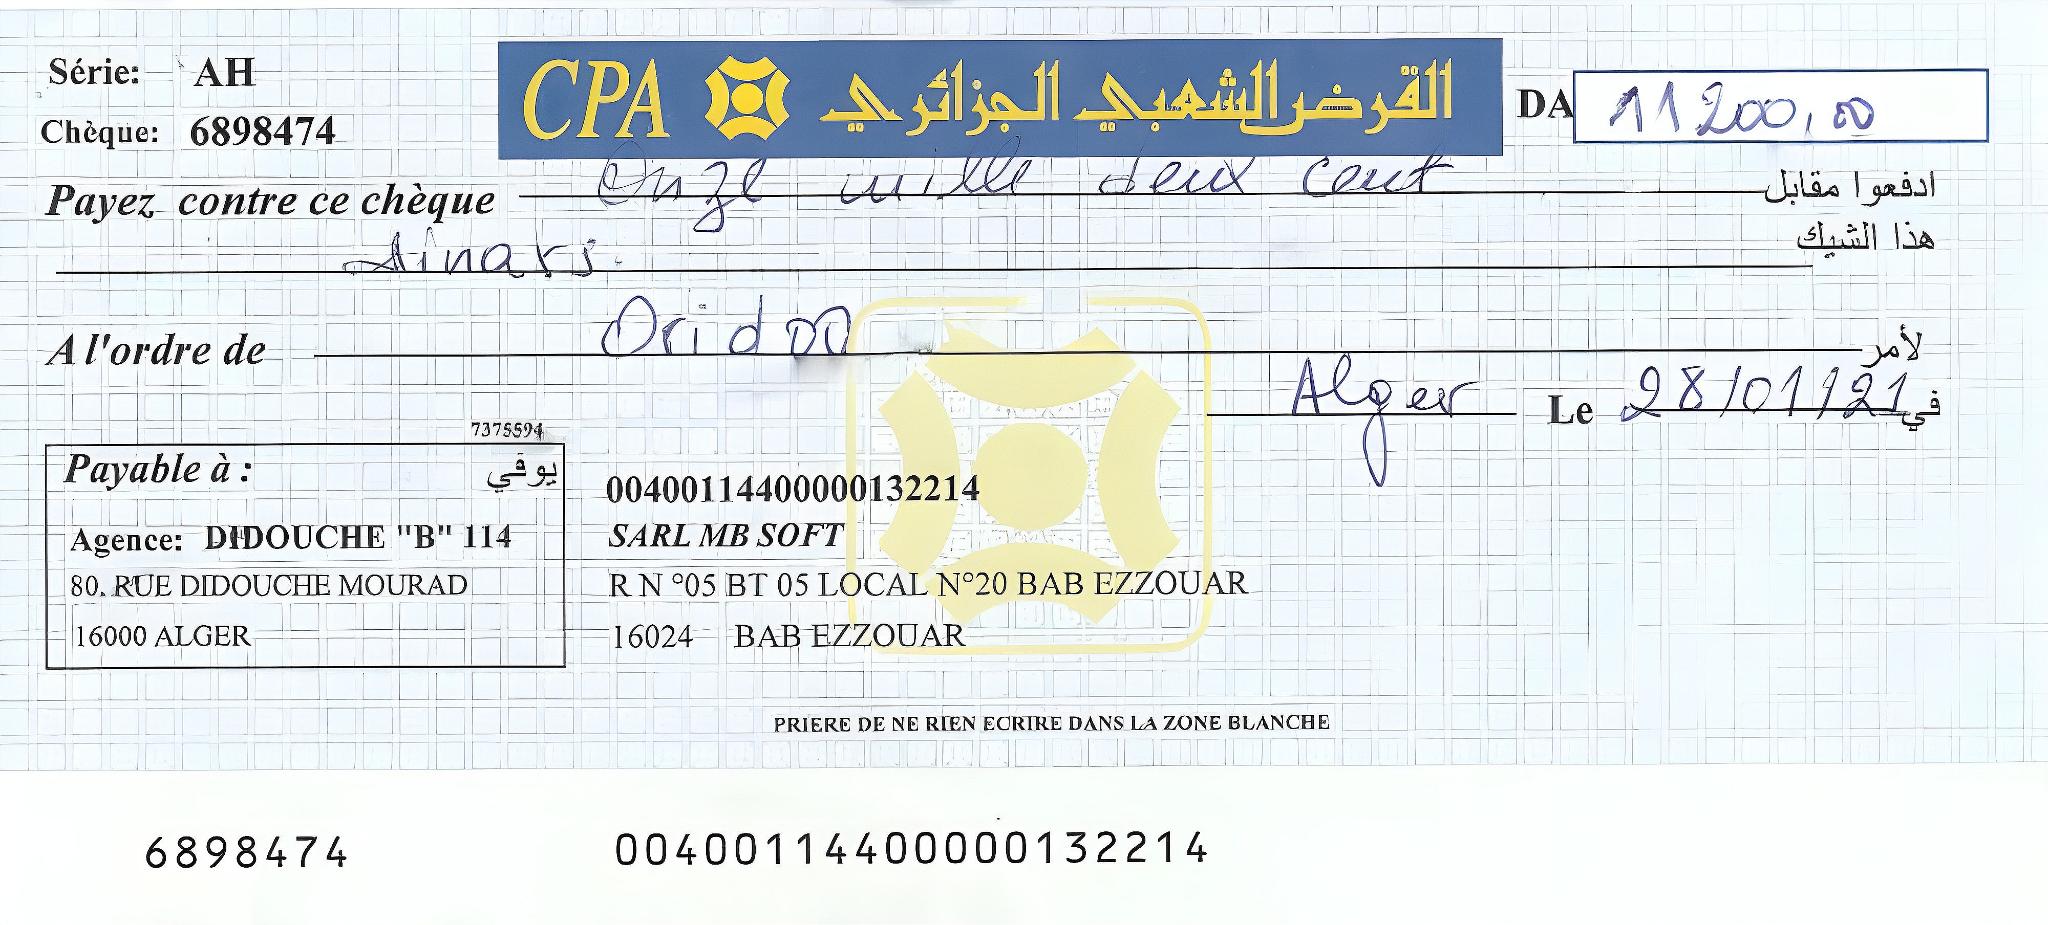 Série: AH
CPA القرض الشعبي الجزائري
DA 11200,00
Chèque: 6898474
Payez contre ce chèque Onze mille deux cent ادفعوا مقابل
هذا الشيك
dinars.
A l'ordre de Oridoo لأمر
Alger Le 28/01/21 في
7375594
Payable à : يوفي
Agence: DIDOUCHE "B" 114
80. RUE DIDOUCHE MOURAD
16000 ALGER
00400114400000132214
SARL MB SOFT
R N °05 BT 05 LOCAL N°20 BAB EZZOUAR
16024 BAB EZZOUAR
PRIERE DE NE RIEN ECRIRE DANS LA ZONE BLANCHE
6898474 00400114400000132214